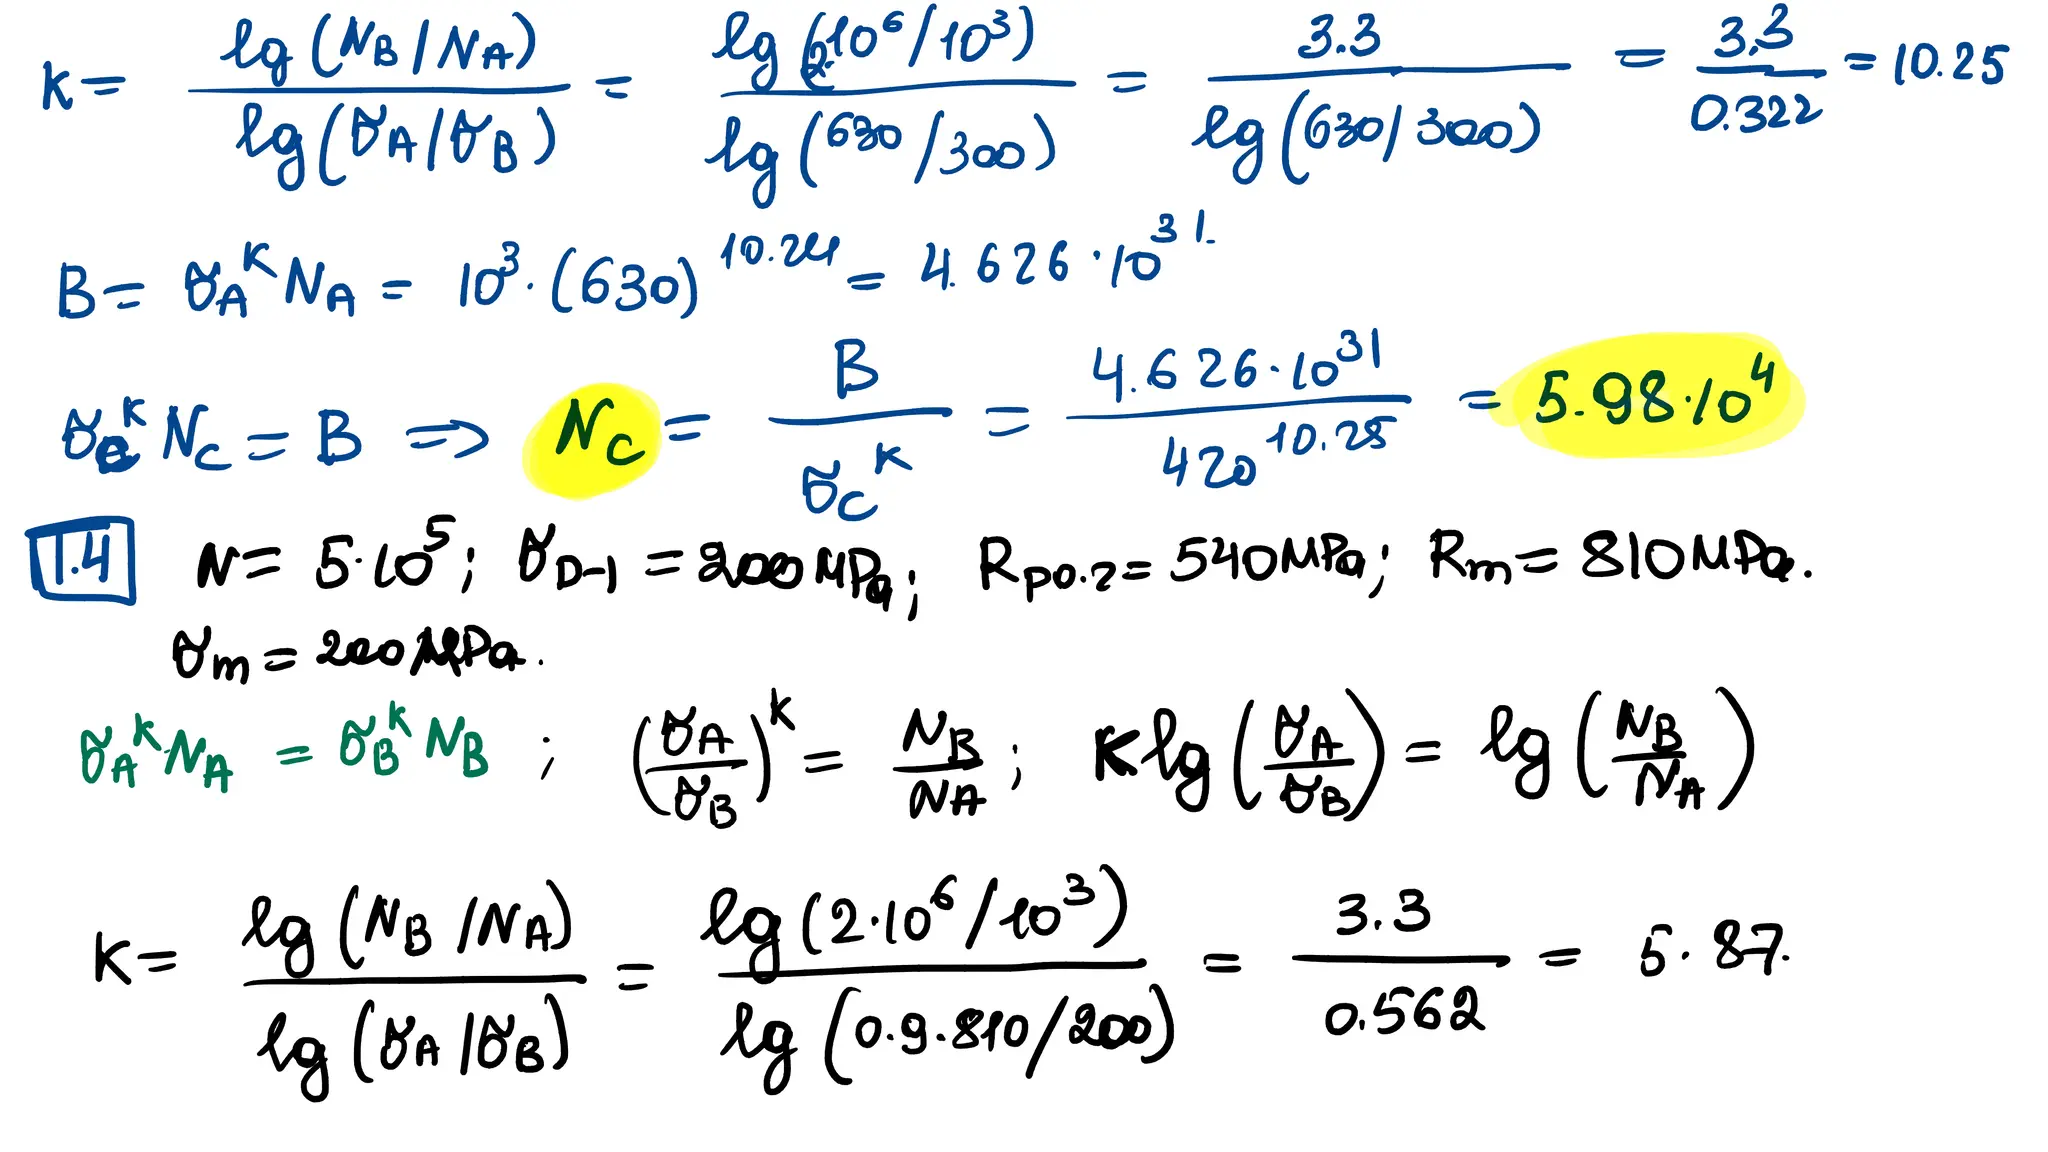 K = lg (NB / NA) / lg (σA / σB) = lg (2·10⁶/10³) / lg (630/300) = 3.3 / lg (630/300) = 3.3 / 0.322 = 10.25
B = σA^K NA = 10³ · (630)^10.24 = 4.626 · 10³¹.
σC^K NC = B => NC = B / σC^K = 4.626·10³¹ / 420^10.25 = 5.98·10⁴
1.4 N = 5·10⁵; σD-1 = 200 MPa; Rp0.2 = 540 MPa; Rm = 810 MPa.
σm = 200 MPa.
σA^K·NA = σB^K NB ; (σA / σB)^K = NB / NA ; K lg (σA / σB) = lg (NB / NA)
K = lg (NB / NA) / lg (σA / σB) = lg (2·10⁶/10³) / lg (0.9·810/200) = 3.3 / 0.562 = 5.87.